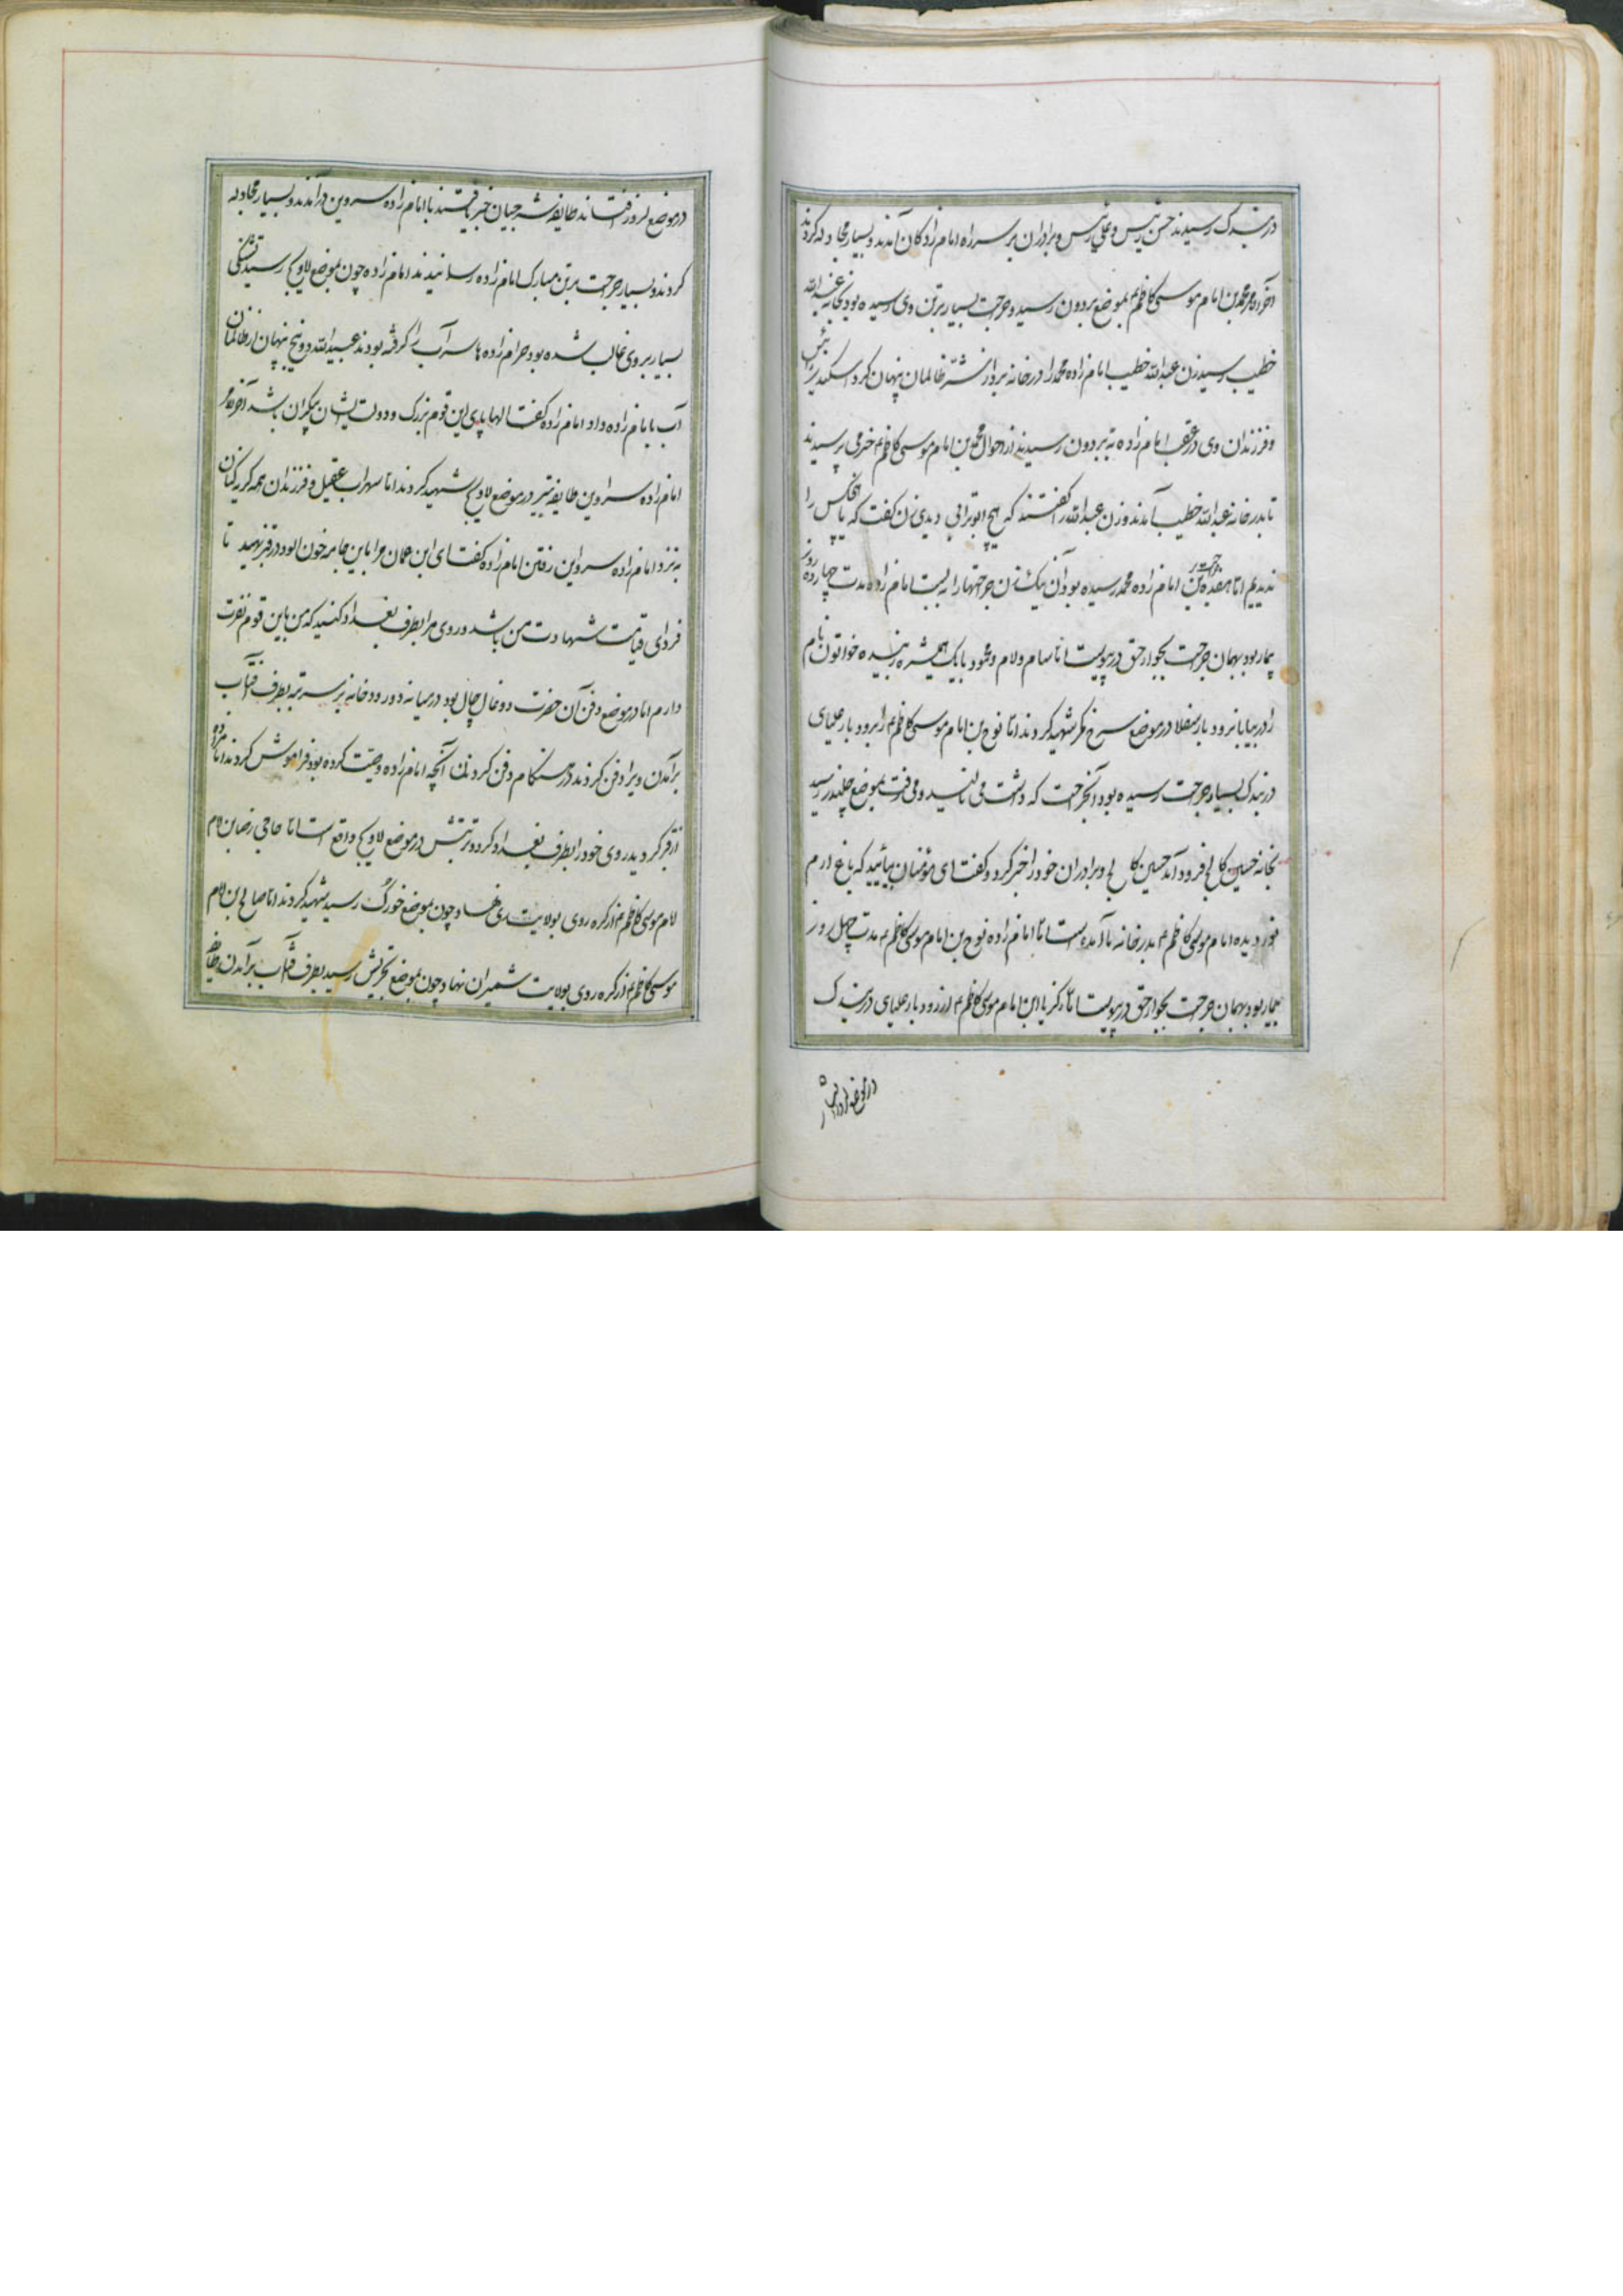 دربندک رسیدند حسن رئیس و علی رئیس و برادران بر سر راه امام زادکان آمدند و بسیار مجادله کردند
آخر الامر محمد بن امام موسی کاظم ع بموضع بردون رسید و جراحت بسیار بر تن وی رسیده بود بخانه عبدالله
خطیب رسید زن عبدالله خطیب امام زاده محمد را در خانه برد از شر ظالمان پنهان کرد
و فرزندان وی در عقب امام زاده به بردون رسیدند از احوال محمد بن امام موسی کاظم ع خبر می پرسیدند
تا بدر خانه عبدالله خطیب آمدند و زن عبدالله را گفتند که هیچ ابوترابی دیدی زن گفت که ما هیچکس را
ندیدیم اما هفده جراحت بر تن امام زاده محمد رسیده بود آن نیک زن جراحتها را به بست امام زاده مدت چهارده روز
بیمار بود بهمان جراحت بجوار حق در پیوست اما سام و لام و محمود با یک همشیره زبیده خواتون نام
را در بیابان رودبار سفلا در موضع سرخ فکر شهید کردند اما نوح بن امام موسی کاظم ع را برودبار علیای
دربندک بسیار جراحت رسیده بود آنجراحت که داشت می نالید و می رفت بموضع چلندر رسید
بخانه حسین کالجی فرود آمد حسین کالجی و برادران خود را خبر کرد و گفت ای مؤمنان بیائید که باغ ارم
نور دیده امام موسی کاظم ع بدر خانه ما آمده است اما امام زاده نوح بن امام موسی کاظم ع مدت چهل روز
بیمار بود بهمان جراحت بجوار حق در پیوست اما زکریا ابن امام موسی کاظم ع از رودبار علیای دربندک
در موضع لزور افتاند طایفه شرجیان خبر یافتند با امام زاده سروین در آمدند و بسیار مجادله
کردند و بسیار جراحت بر تن مبارک امام زاده رسانیدند امام زاده چون بموضع لاویج رسید تشنگی
بسیار بر وی غالب شده بود حرام زاده ها سر آب را گرفته بودند عبیدالله دونج پنهان از ظالمان
آب با امام زاده داد امام زاده گفت الها پای این قوم بزرگ و دولت ایشان بیکران باشد آخر الامر
امام زاده سروین طایفه تبیر در موضع لاویج شهید کردند اما سهراب عقیل و فرزندان همه گریه کنان
به نزد امام زاده سروین رفتن امام زاده گفت ای ابن عمان مرا باین جامه خون الود در قبر نهید تا
فردای قیامت شهادت من باشد و روی مرا بطرف بغداد کنید که من باین قوم نفرت
دارم اما در موضع دفن آن حضرت دوغال چال بود در میانه دو رودخانه بر سر تپه بطرف آفتاب
برآمدن ویرا دفن کردند در هنکام دفن کردن آنچه امام زاده وصیت کرده بود فراموش کردند امام زاده
از قبر کردید روی خود را بطرف بغداد کرد و تربتش در موضع لاویج واقع است اما حاجی رضا بن امام
امام موسی کاظم ع از کره روی بولایت ری نهاد چون بموضع خورک رسید شهید کردند اما صالح بن امام
موسی کاظم ع از کره روی بولایت شمیران نهاد چون بموضع تجریش رسید بطرف آفتاب برآمدن